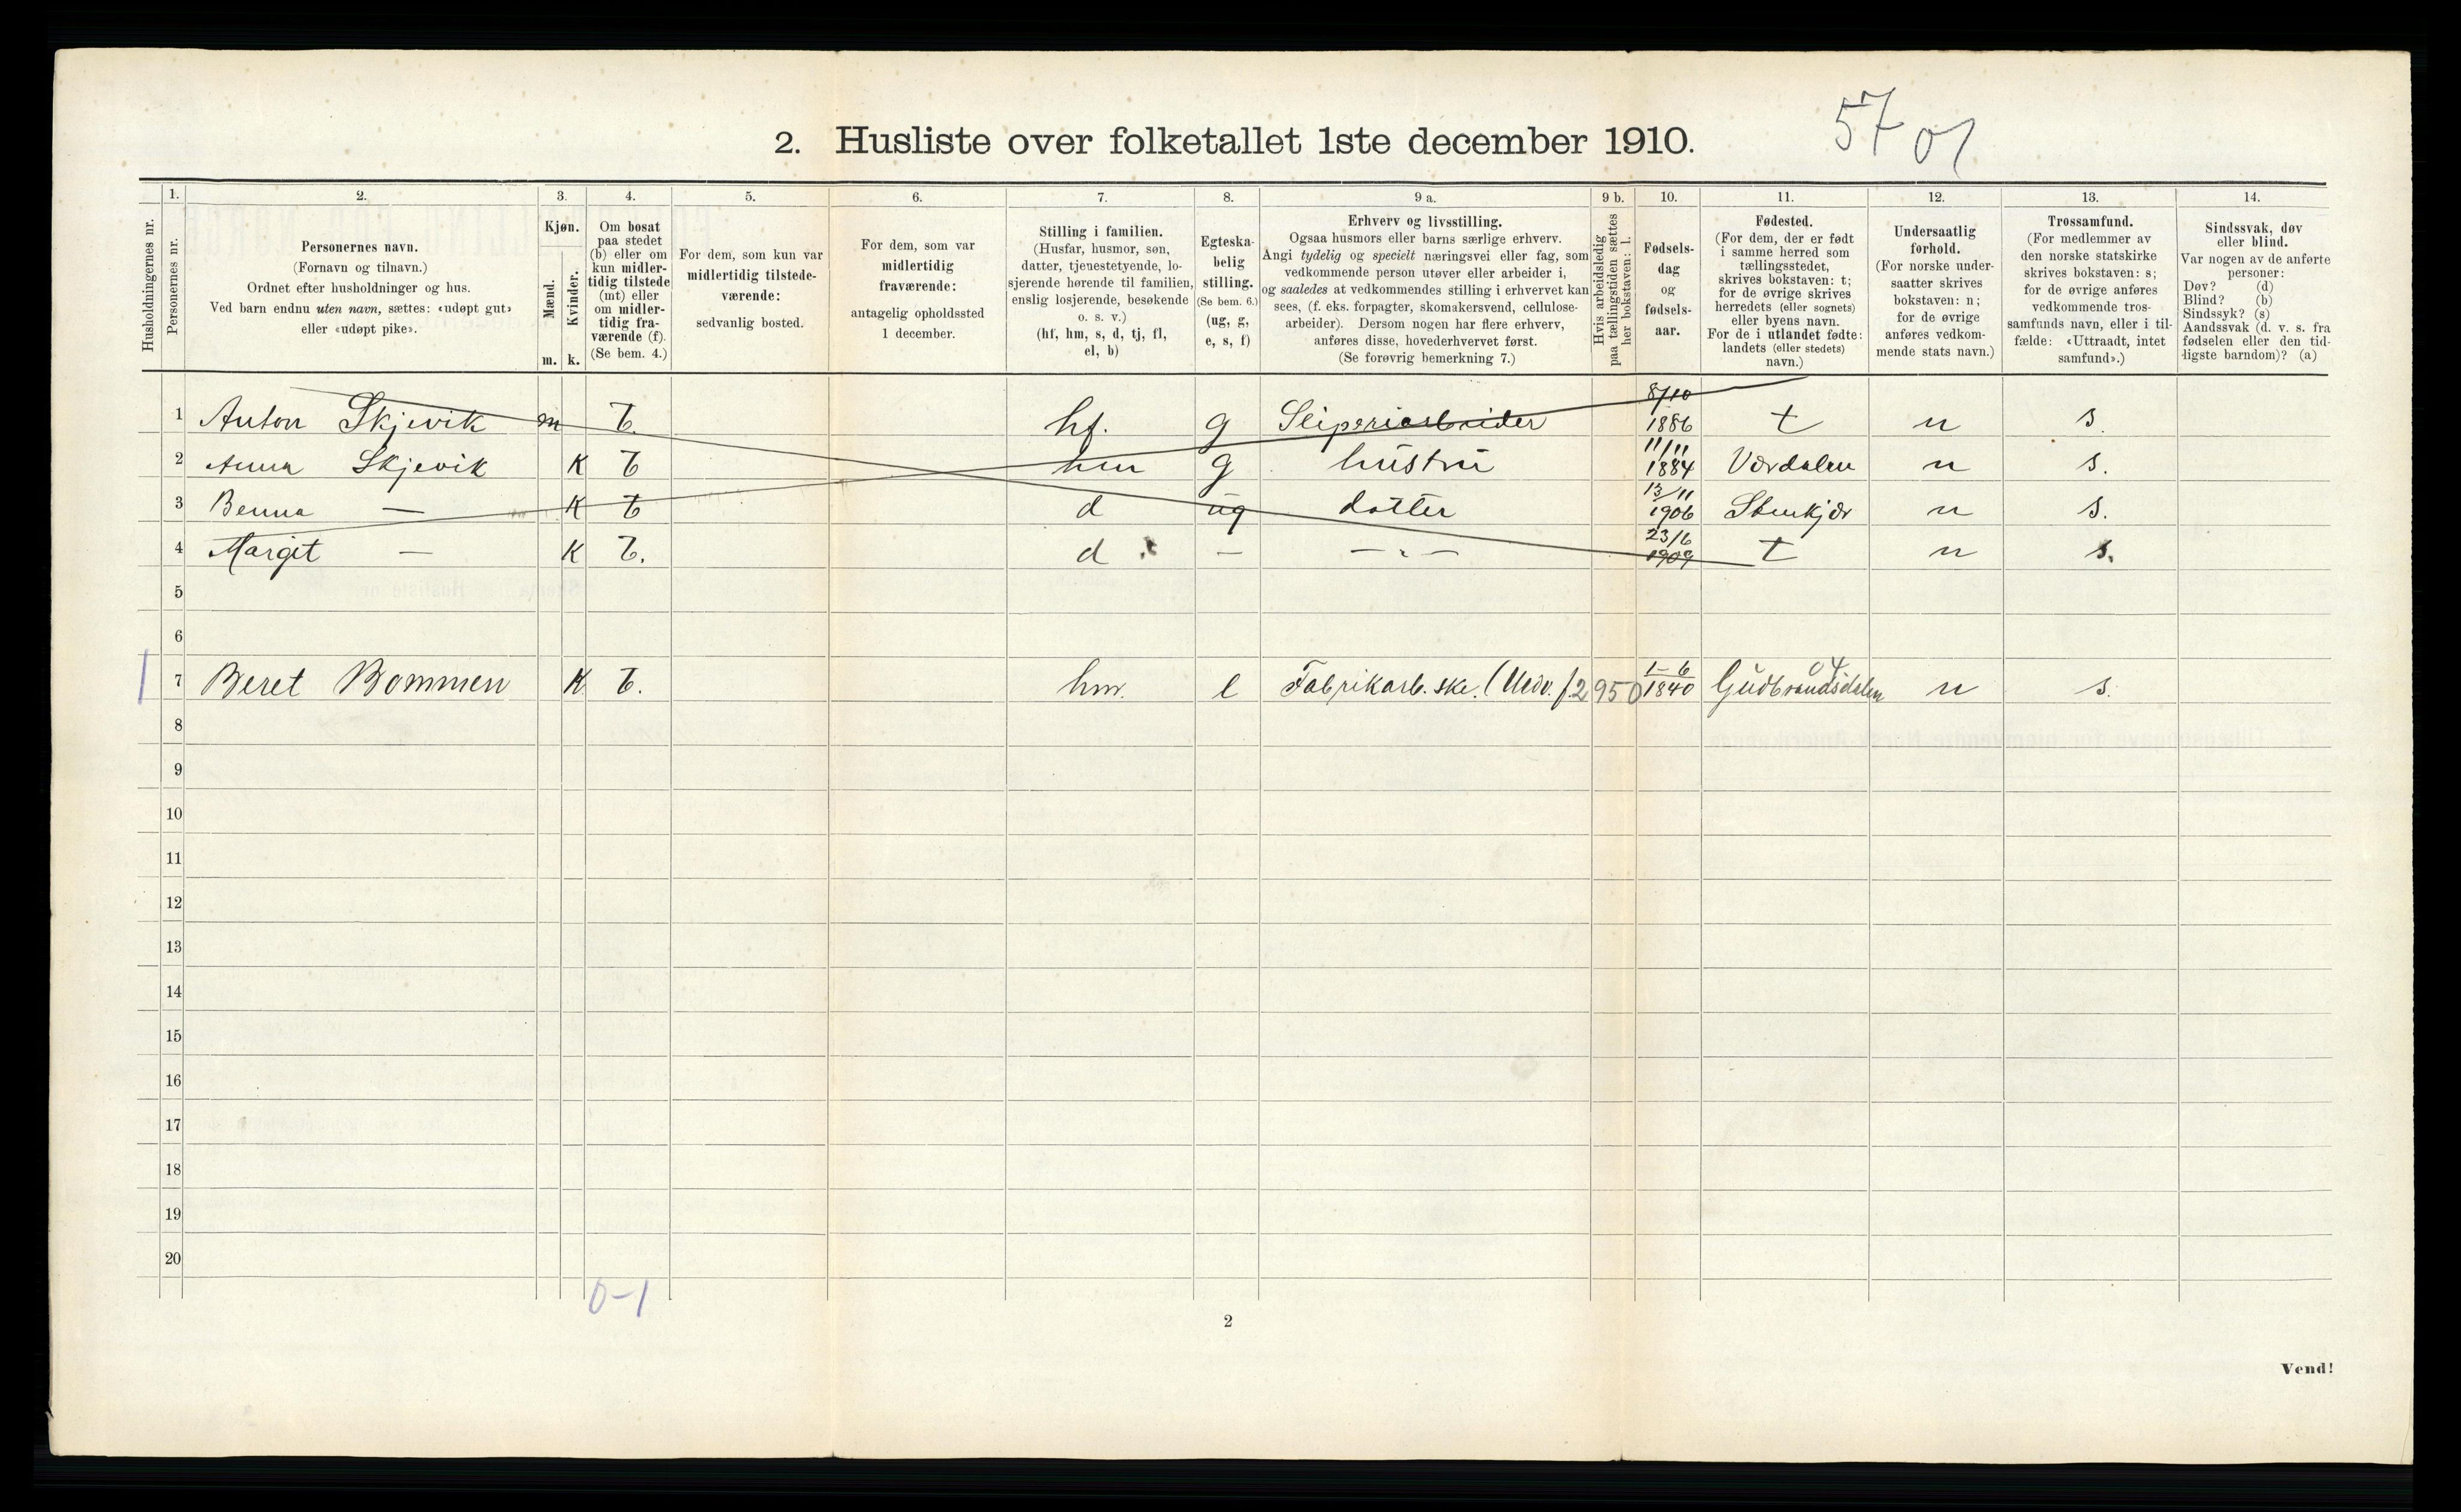 57 01
2. Husliste over folketallet 1ste december 1910.
Husholdningernes nr.
1. Personernes nr.
2. Personernes navn.
(Fornavn og tilnavn.)
Ordnet efter husholdninger og hus.
Ved barn endnu uten navn, sættes: «udøpt gut»
eller «udøpt pike».
3. Kjøn.
Mænd. m.
Kvinder. k.
4. Om bosat
paa stedet
(b) eller om
kun midler-
tidig tilstede
(mt) eller
om midler-
tidig fra-
værende (f).
(Se bem. 4.)
5. For dem, som kun var
midlertidig tilstede-
værende:
sedvanlig bosted.
6. For dem, som var
midlertidig
fraværende:
antagelig opholdssted
1 december.
7. Stilling i familien.
(Husfar, husmor, søn,
datter, tjenestetyende, lo-
sjerende hørende til familien,
enslig losjerende, besøkende
o. s. v.)
(hf, hm, s, d, tj, fl,
el, b)
8. Egteska-
belig
stilling.
(Se bem. 6.)
(ug, g,
e, s, f)
9 a. Erhverv og livsstilling.
Ogsaa husmors eller barns særlige erhverv.
Angi tydelig og specielt næringsvei eller fag, som
vedkommende person utøver eller arbeider i,
og saaledes at vedkommendes stilling i erhvervet kan
sees, (f. eks. forpagter, skomakersvend, cellulose-
arbeider). Dersom nogen har flere erhverv,
anføres disse, hovederhvervet først.
(Se forøvrig bemerkning 7.)
9 b. Hvis arbeidsledig
paa tællingstiden sættes
her bokstaven: l.
10. Fødsels-
dag
og
fødsels-
aar.
11. Fødested.
(For dem, der er født
i samme herred som
tællingsstedet,
skrives bokstaven: t;
for de øvrige skrives
herredets (eller sognets)
eller byens navn.
For de i utlandet fødte:
landets (eller stedets)
navn.)
12. Undersaatlig
forhold.
(For norske under-
saatter skrives
bokstaven: n;
for de øvrige
anføres vedkom-
mende stats navn.)
13. Trossamfund.
(For medlemmer av
den norske statskirke
skrives bokstaven: s;
for de øvrige anføres
vedkommende tros-
samfunds navn, eller i til-
fælde: «Uttraadt, intet
samfund».)
14. Sindssvak, døv
eller blind.
Var nogen av de anførte
personer:
Døv? (d)
Blind? (b)
Sindssyk? (s)
Aandssvak (d. v. s. fra
fødselen eller den tid-
ligste barndom)? (a)
1 Anton Skjevik m b. hf. g Sliperiarbeider 8/10 1886 t n s.
2 Anna Skjevik K b hm g hustru 11/11 1884 Værdalen n s.
3 Benna — K b d ug datter 13/11 1906 Stenkjær n s.
4 Margit — K b. d — — " — 23/6 1909 t n s.
5
6
1 7 Beret Bommen K b. hm. e Fabrikarb.ske. 2950 1-6 1840 Gudbrandsdalen 04 n s.
8
9
10
11
12
13
14
15
16
17
18
19
20
0-1
2
Vend!